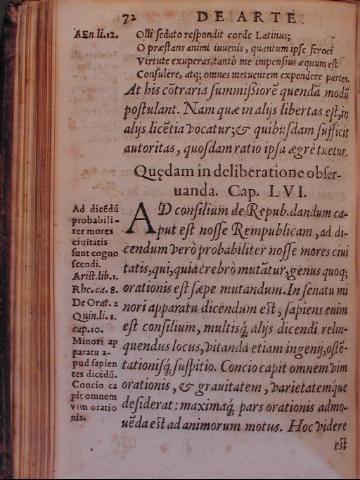 72 DE ARTE
AEn. li. 12.
Olli sedato respondit corde Latinus;
O præstans animi iuuenis, quantum ipse feroci
Virtute exuperas, tantò me impensius æquum est
Consulere, atq; omnes metuentem expendere partes.
At his cōtraria summissiorē quendā modū
postulant. Nam quæ in alijs libertas est, in
alijs licētia vocatur; & quibusdam sufficit
autoritas, quosdam ratio ipsa ægrè tuetur.
Quędam in deliberatione obser-
uanda. Cap. LVI.
AD consilium de Repub. dandum ca-
put est nosse Rempublicam, ad di-
cendum verò probabiliter nosse mores ciui
tatis, qui, quia crebrò mutātur, genus quoq;
orationis est sæpe mutandum. In senatu mi
nori apparatu dicendum est; sapiens enim
est consilium, multisq́; alijs dicendi relin-
quendus locus, vitanda etiam ingenij, ostē-
tationisq́; suspitio. Concio capit omnem vim
orationis, & grauitatem, varietatemque
desiderat: maximaq́; pars orationis admo-
uēda est ad animorum motus. Hoc videre
est
Ad dicēdū
probabili-
ter mores
ciuitatis
sunt cogno
scendi.
Arist. lib. 1.
Rhe. ca. 8.
De Orat. 2
Quin. li. 3.
cap. 10.
Minori ap
paratu a-
pud sapien
tes dicēdū.
Concio ca
pit omnem
vim oratio
nis.